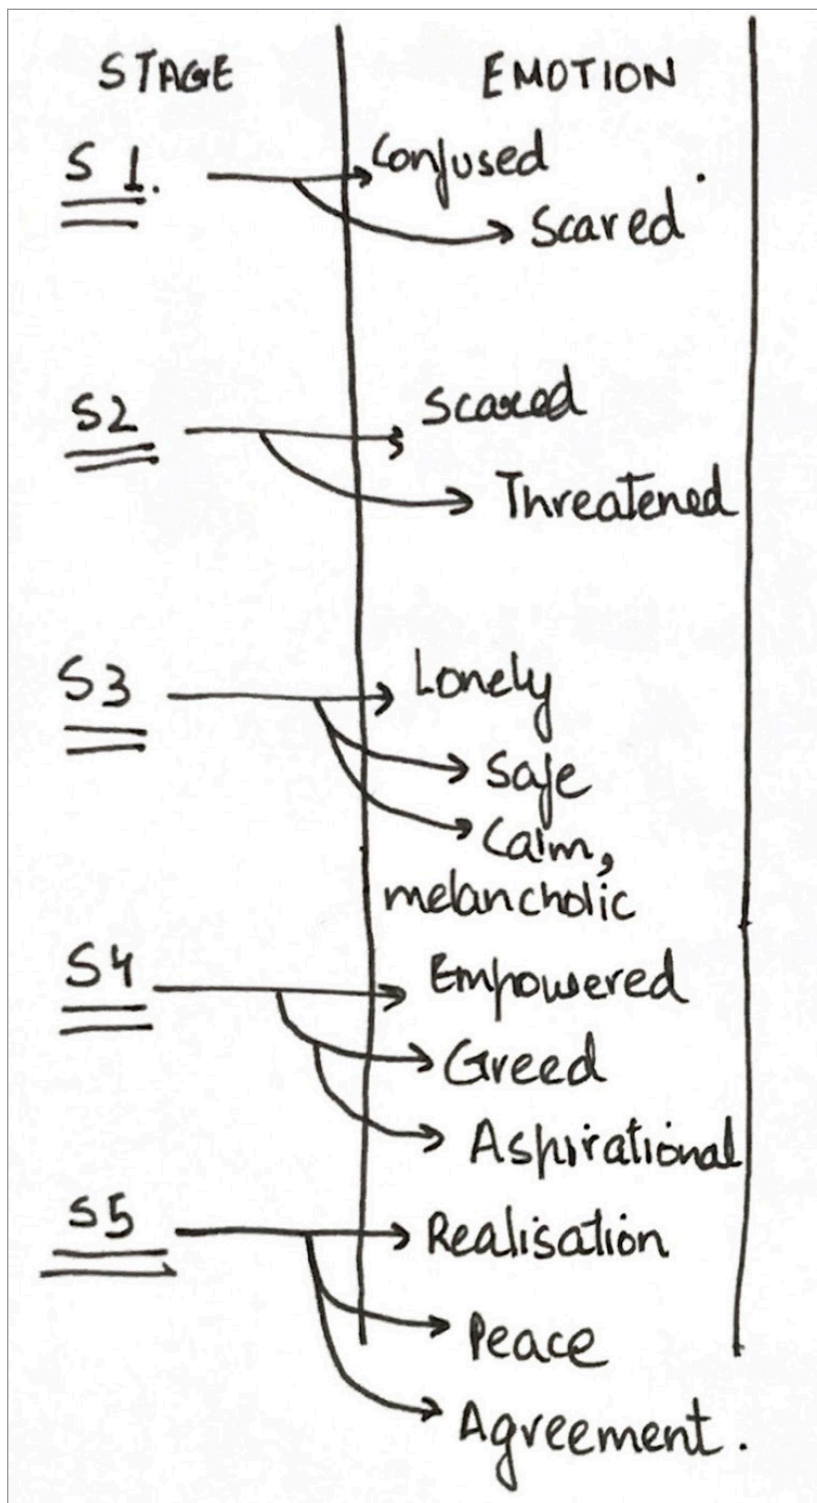 STAGE EMOTION
S 1. Confused
Scared
S2 Scared
Threatened
S3 Lonely
Safe
Calm,
melancholic
S4 Empowered
Greed
Aspirational
S5 Realisation
Peace
Agreement.